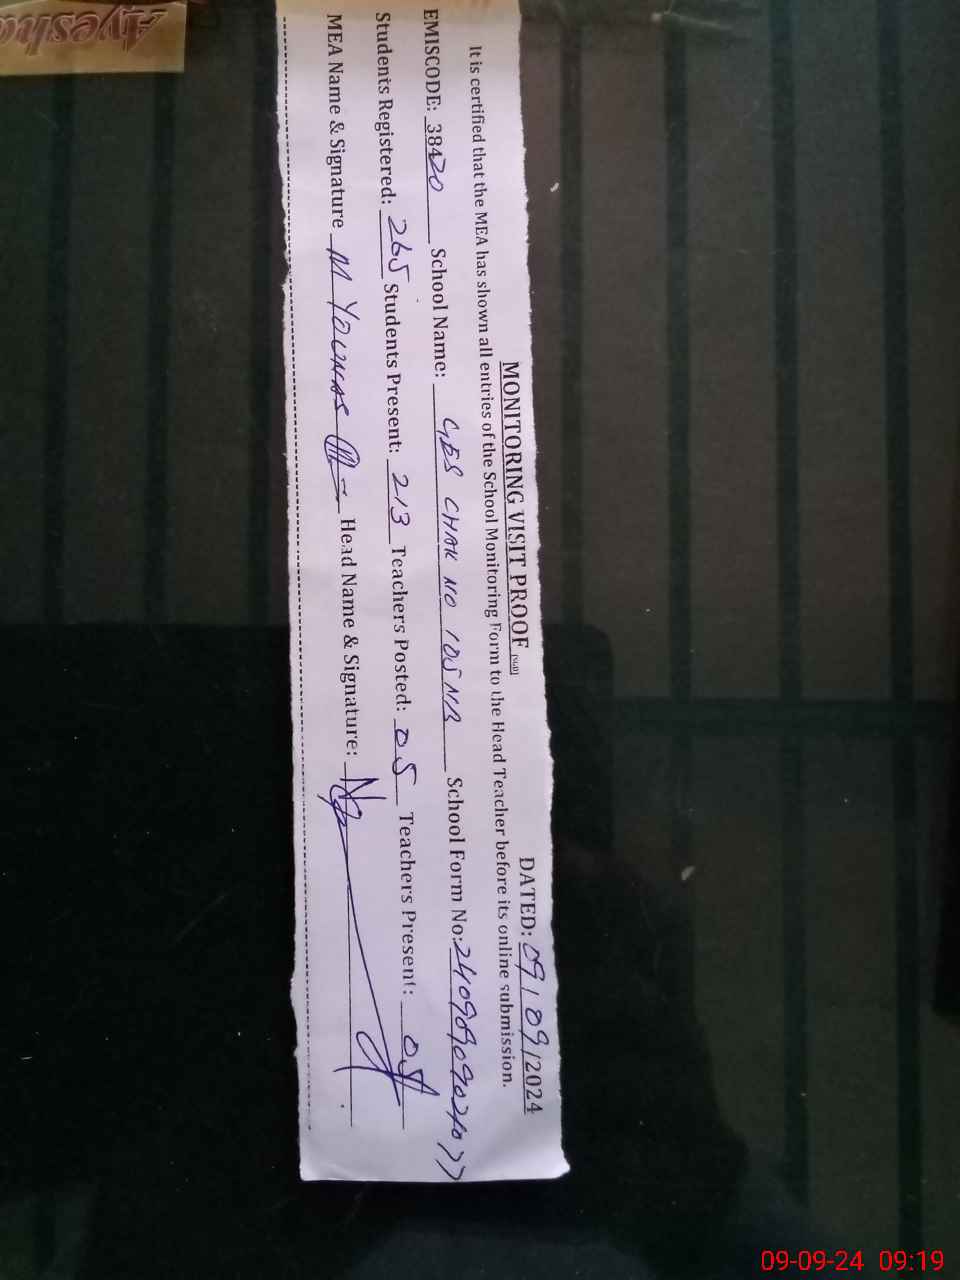 MONITORING VISIT PROOF
DATED: 09/09/2024
It is certified that the MEA has shown all entries of the School Monitoring Form to the Head Teacher before its online submission.
EMISCODE: 38420 School Name: GES CHAK NO 105 NB School Form No:
Students Registered: 265 Students Present: 213 Teachers Posted: 05 Teachers Present: 05
MEA Name & Signature M YOUNAS Head Name & Signature:
Ayesha
09-09-24 09:19